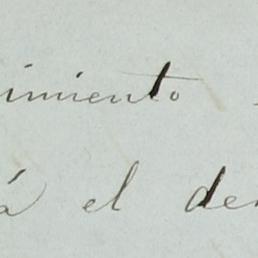 imiento
á el de